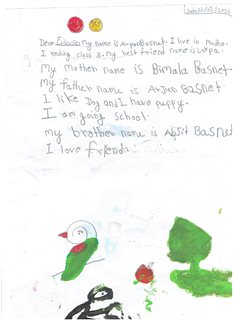 Dear
My name is Basnet. I live in
I reding class 3. my best friend name is
My mother name is Bimala Basnet.
My father name is Arjun Basnet.
I like Dog and I have puppy.
I am going school.
my brother name is Basnet
I love friend